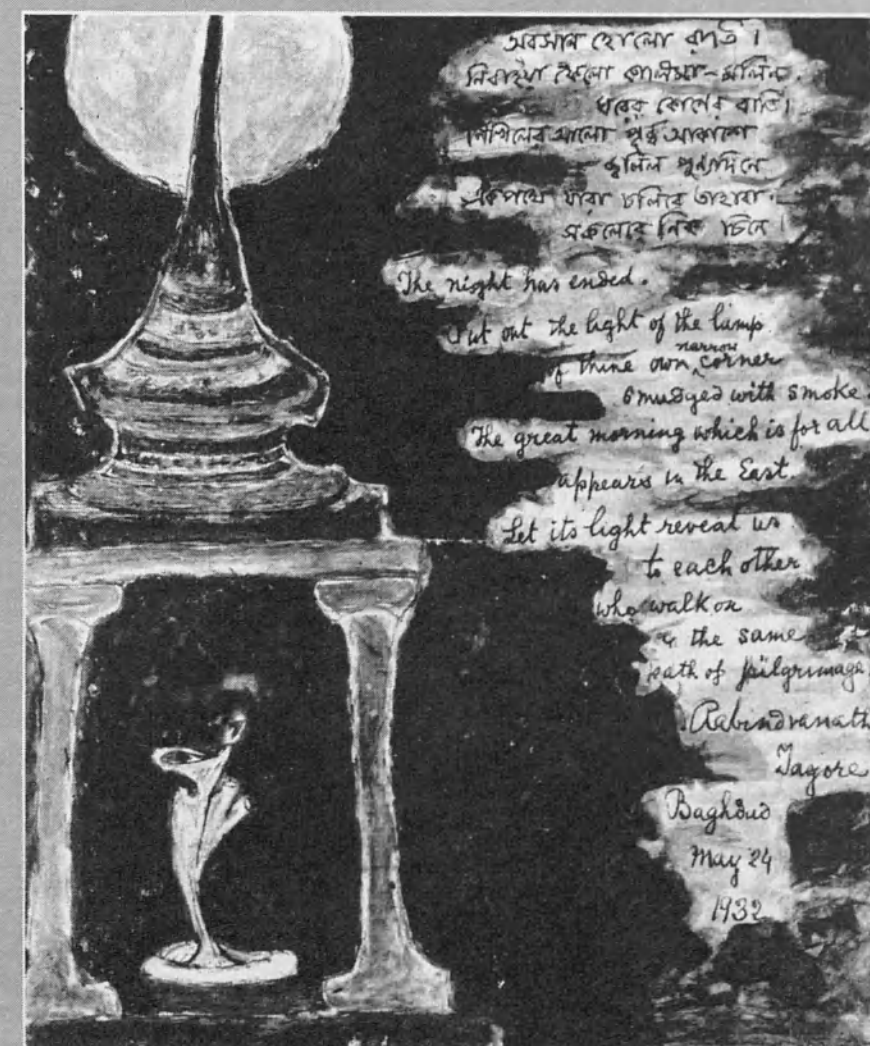 অবসান হোলো রাতি ।
নিবাইয়া ফেলো কালিমা-মলিন
ঘরের কোণের বাতি ।
নিখিলের আলো পূর্ব্ব আকাশে
জ্বলিল পুণ্যদিনে
একপথে যারা চলিবে তাহারা
সকলেরে নিক্ চিনে ।
The night has ended.
Put out the light of the lamp
of thine own narrow corner
smudged with smoke.
The great morning which is for all
appears in the East.
Let its light reveal us
to each other
who walk on
the same
path of pilgrimage
Rabindranath
Tagore
Baghdad
May 24
1932